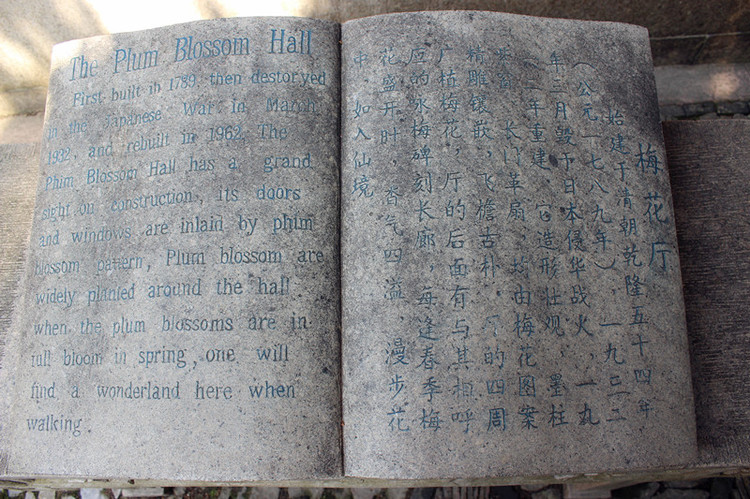 The Plum Blossom Hall
First built in 1789, then destoryed
in the Japanese War in March
1932, and rebuilt in 1962. The
Plum Blossom Hall has a grand
sight on construction, its doors
and windows are inlaid by plum
blossom pattern, Plum blossom are
widely planted around the hall
when the plum blossoms are in
full bloom in spring, one will
find a wonderland here when
walking.
梅花厅
始建于清朝乾隆五十四年
(公元一七八九年),一九三二
年三月毁于日本侵华战火,一九
二年重建 它造形壮观,墨柱
长门革扇,均由梅花图案
精雕镶嵌,飞檐古朴,的四周
广植梅花,厅的后面有与其相呼
应的咏梅碑刻长廊,每逢春季梅
花盛开时,香气四溢,漫步花
中如入仙境